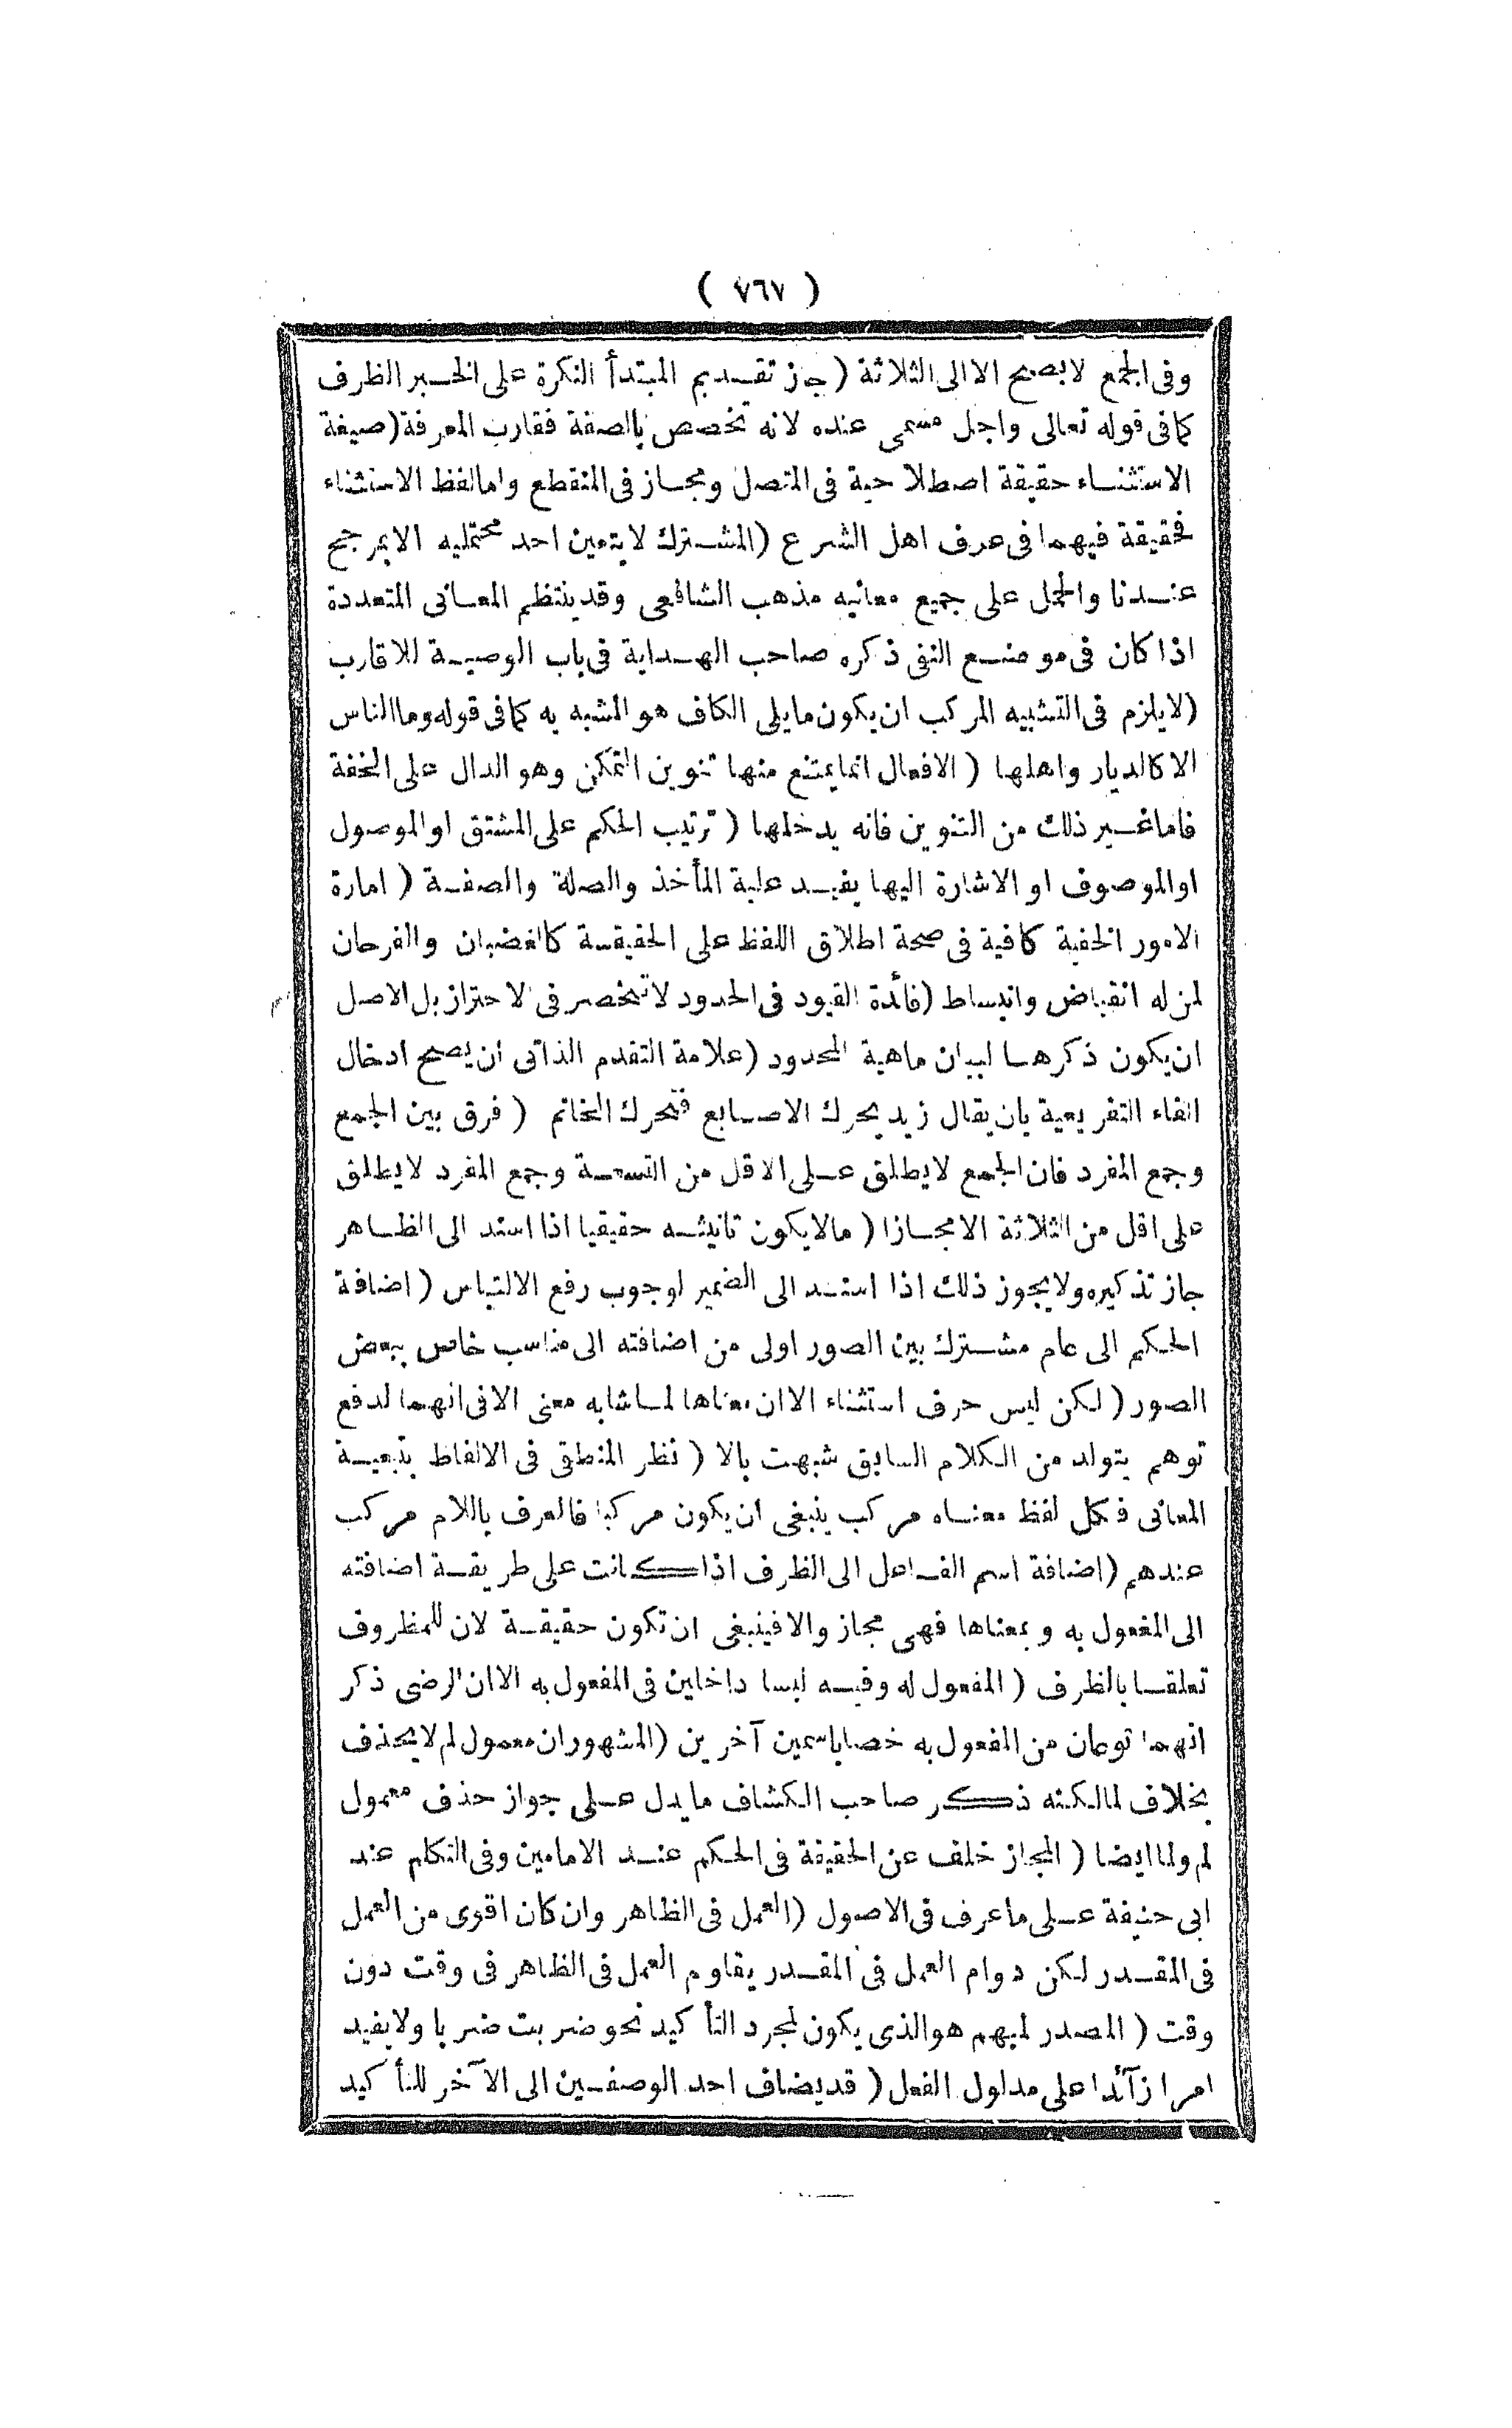 ( ٧٦٧ )
وفى الجمع لا يصح الا الى الثلاثة ( جاز تقديم المبتدأ النكرة على الخبر الظرف
كما فى قوله تعالى واجل مسمى عنده لانه تخصص بالصفة فقارب المعرفة ( صيغة
الاستثناء حقيقة اصطلاحية فى المتصل ومجاز فى المنقطع واما لفظ الاستثناء
فحقيقة فيهما فى عرف اهل الشرع ( المشترك لا يتعين احد محتمليه الا بمرجح
عندنا والحمل على جميع معانيه مذهب الشافعى وقد ينتظم المعانى المتعددة
اذا كان فى موضع النفى ذكره صاحب الهداية فى باب الوصية للاقارب
( لا يلزم فى التشبيه المركب ان يكون ما يلى الكاف هو المشبه به كما فى قوله وما الناس
الا كالديار واهلها ( الافعال انما يمتنع منها تنوين التمكن وهو الدال على الخفة
فاما غير ذلك من التنوين فانه يدخلها ( ترتيب الحكم على المشتق او الموصول
او الموصوف او الاشارة اليها يفيد علية المأخذ والصلة والصفة ( امارة
الامور الخفية كافية فى صحة اطلاق اللفظ على الحقيقة كالغضبان والفرحان
لمن له انقباض وانبساط ( فائدة القيود فى الحدود لا تنحصر فى الاحتراز بل الاصل
ان يكون ذكرها لبيان ماهية المحدود ( علامة التقدم الذاتى ان يصح ادخال
الفاء التفريعية بان يقال زيد يحرك الاصابع فتحرك الخاتم ( فرق بين الجمع
وجمع المفرد فان الجمع لا يطلق على الاقل من التسعة وجمع المفرد لا يطلق
على اقل من الثلاثة الا مجازا ( ما لا يكون تانيثه حقيقيا اذا اسند الى الظاهر
جاز تذكيره ولا يجوز ذلك اذا اسند الى الضمير لوجوب رفع الالتباس ( اضافة
الحكم الى عام مشترك بين الصور اولى من اضافته الى مناسب خاص ببعض
الصور ( لكن ليس حرف استثناء الا ان معناها لما شابه معنى الا فى انهما لدفع
توهم يتولد من الكلام السابق شبهت بالا ( نظر المنطقى فى الالفاظ بتبعية
المعانى فكل لفظ معناه مركب ينبغى ان يكون مركبا فالمعرف باللام مركب
عندهم ( اضافة اسم الفاعل الى الظرف اذا كانت على طريقة اضافته
الى المفعول به وبمعناها فهى مجاز والا فينبغى ان تكون حقيقة لان للمظروف
تعلقا بالظرف ( المفعول له وفيه ليسا داخلين فى المفعول به الا ان الرضى ذكر
انهما نوعان من المفعول به خصا باسمين آخرين ( المشهور ان معمول لم لا يحذف
بخلاف لما لكنه ذكر صاحب الكشاف ما يدل على جواز حذف معمول
لم ولما ايضا ( المجاز خلف عن الحقيقة فى الحكم عند الامامين وفى التكلم عند
ابى حنيفة على ما عرف فى الاصول ( العمل فى الظاهر وان كان اقوى من العمل
فى المقدر لكن دوام العمل فى المقدر يقاوم العمل فى الظاهر فى وقت دون
وقت ( المصدر المبهم هو الذى يكون لمجرد التأكيد نحو ضربت ضربا ولا يفيد
امرا زآئدا على مدلول الفعل ( قد يضاف احد الوصفين الى الآخر للتأكيد